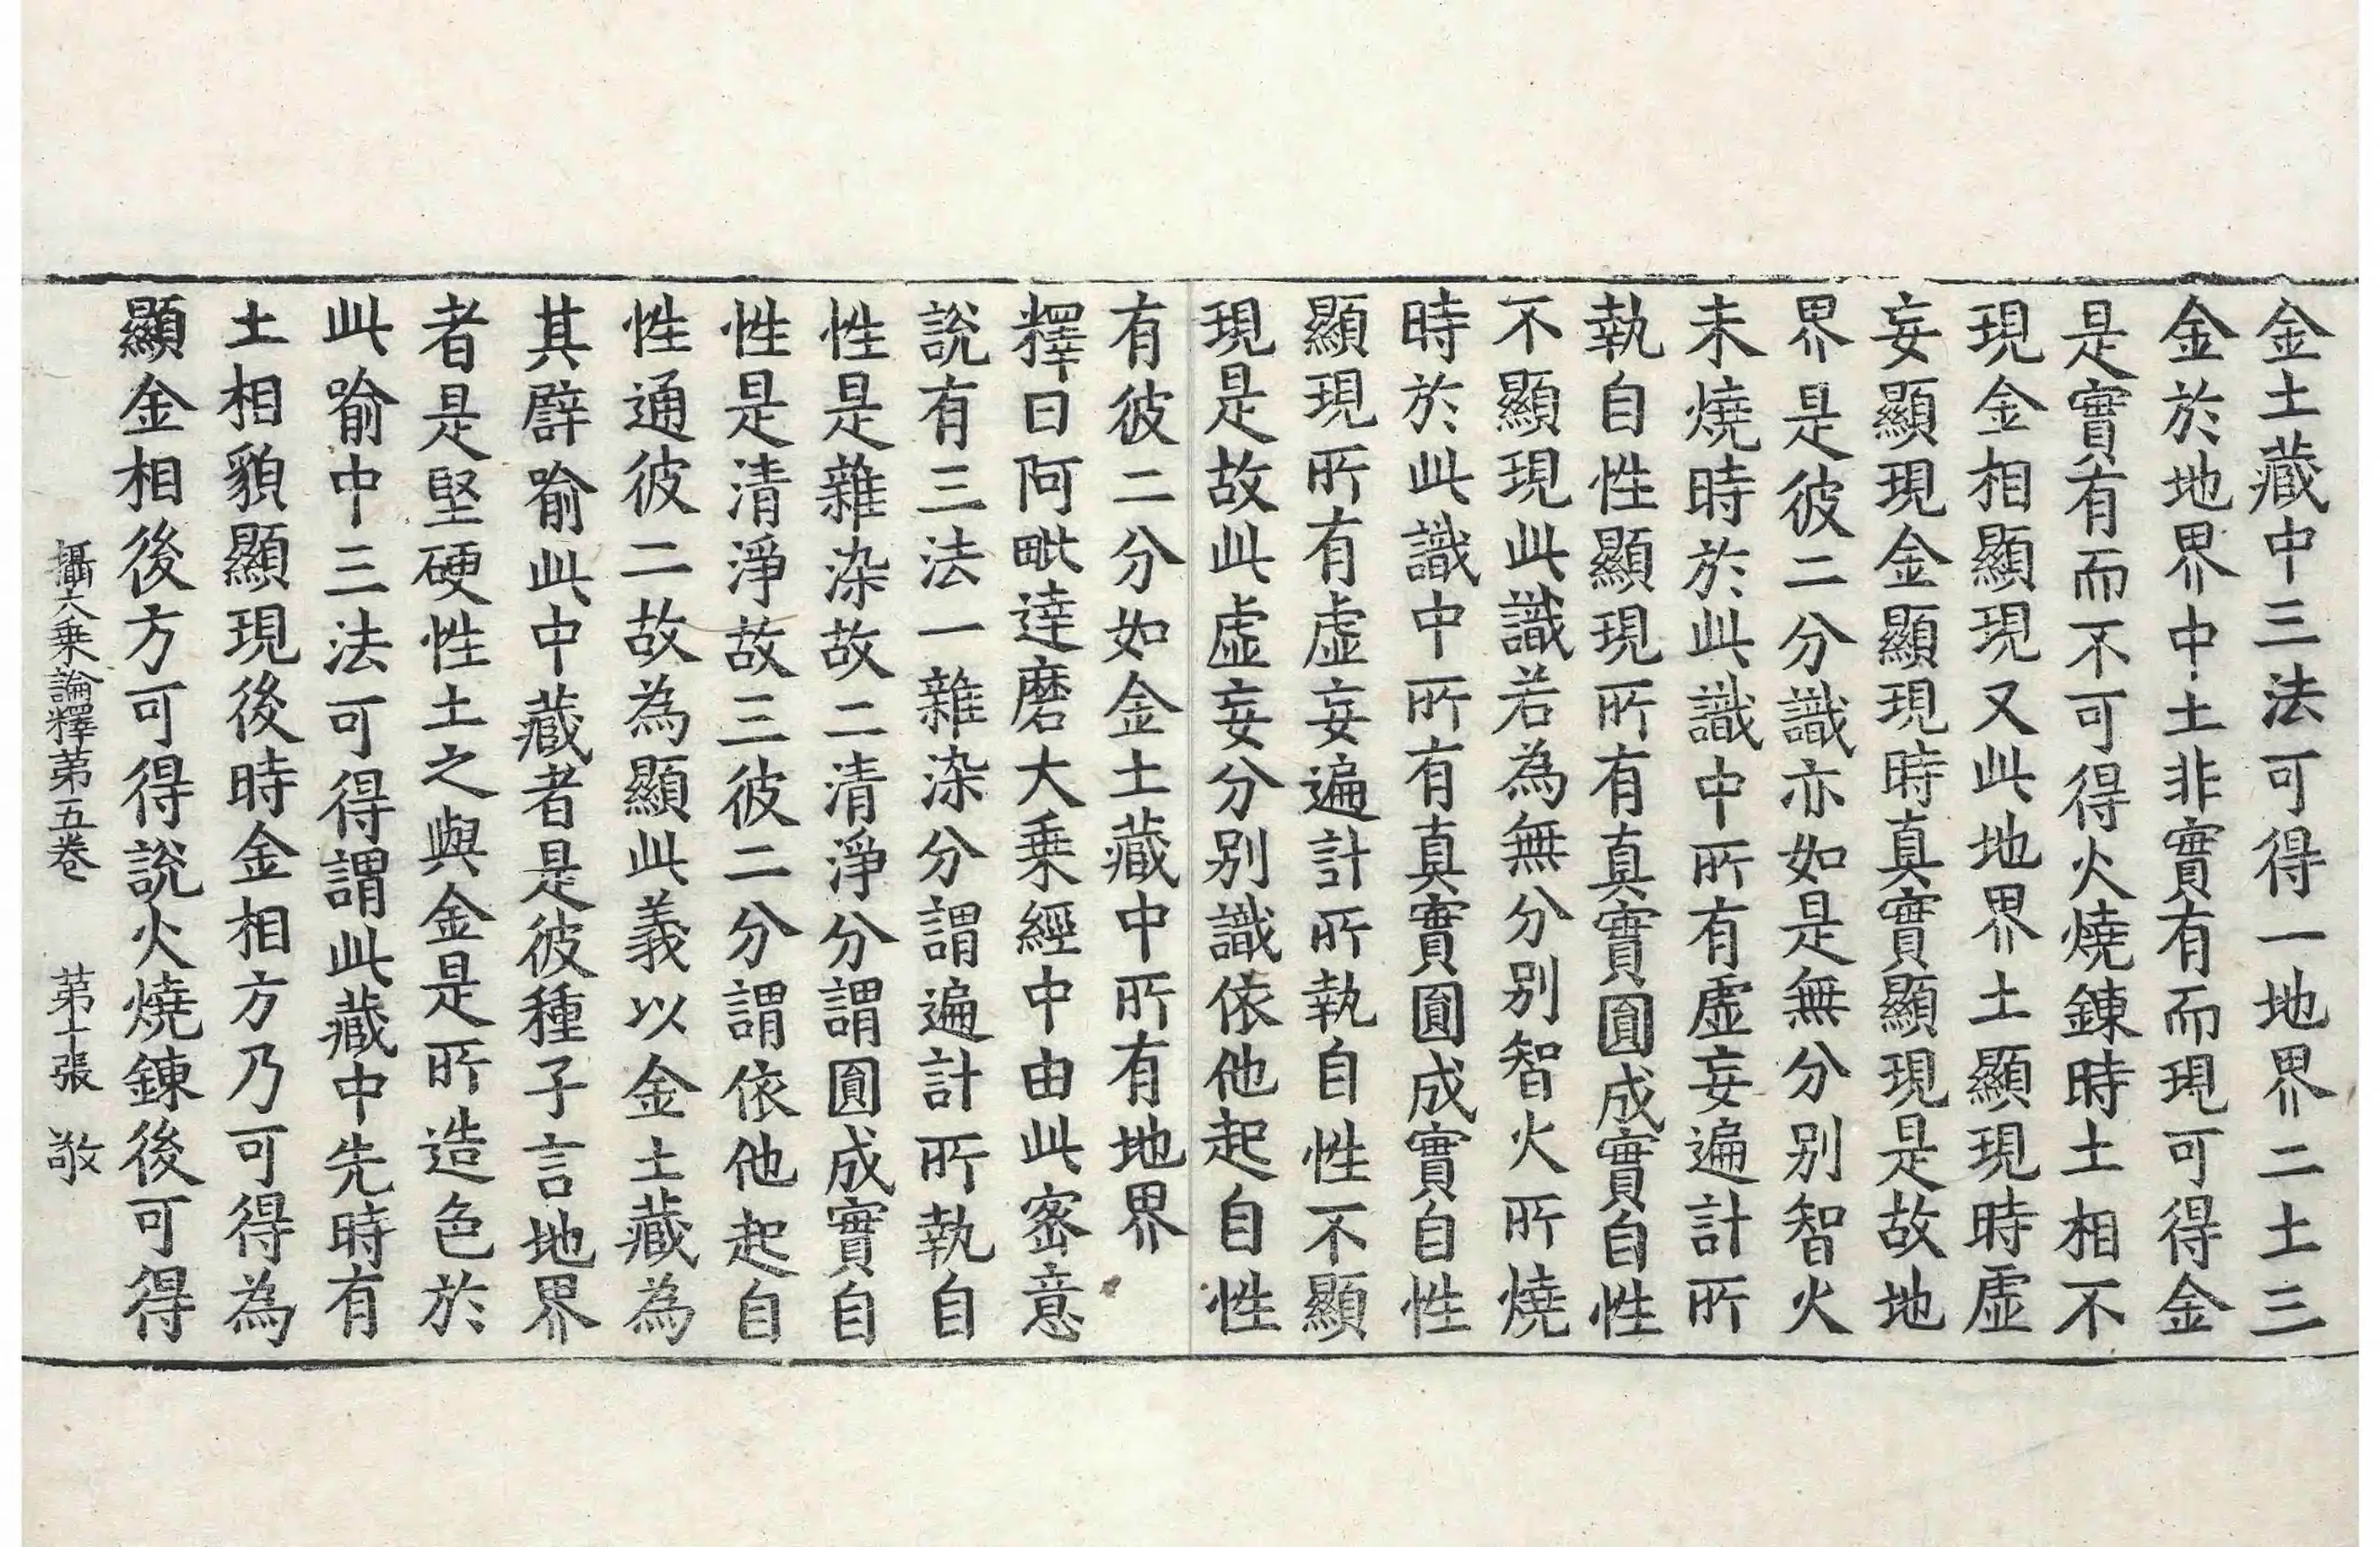 金土藏中三法可得一地界二土三
金於地界中土非實有而現可得金
是實有而不可得火燒鍊時土相不
現金相顯現又此地界土顯現時虛
妄顯現金顯現時真實顯現是故地
界是彼二分識亦如是無分别智火
未燒時於此識中所有虛妄遍計所
執自性顯現所有真實圓成實自性
不顯現此識若為無分别智火所燒
時於此識中所有真實圓成實自性
顯現所有虛妄遍計所執自性不顯
現是故此虛妄分别識依他起自性
有彼二分如金土藏中所有地界
釋曰阿毗達磨大乗經中由此密意
說有三法一雜染分謂遍計所執自
性是雜染故二清淨分謂圓成實自
性是清淨故三彼二分謂依他起自
性通彼二故為顯此義以金土藏為
其譬喻此中藏者是彼種子言地界
者是堅硬性土之與金是所造色於
此喻中三法可得謂此藏中先時有
土相貌顯現後時金相方乃可得為
顯金相後方可得說火燒鍊後可得
攝大乗論釋第五卷　第十張　敬